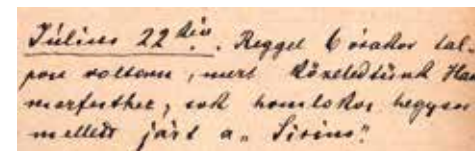 Július 22 kén. Reggel 6 órakor tal-
pon voltam, mert közeledtünk Ham
merfesthez, sok homlokos hegyen
mellett járt a „Sirius"